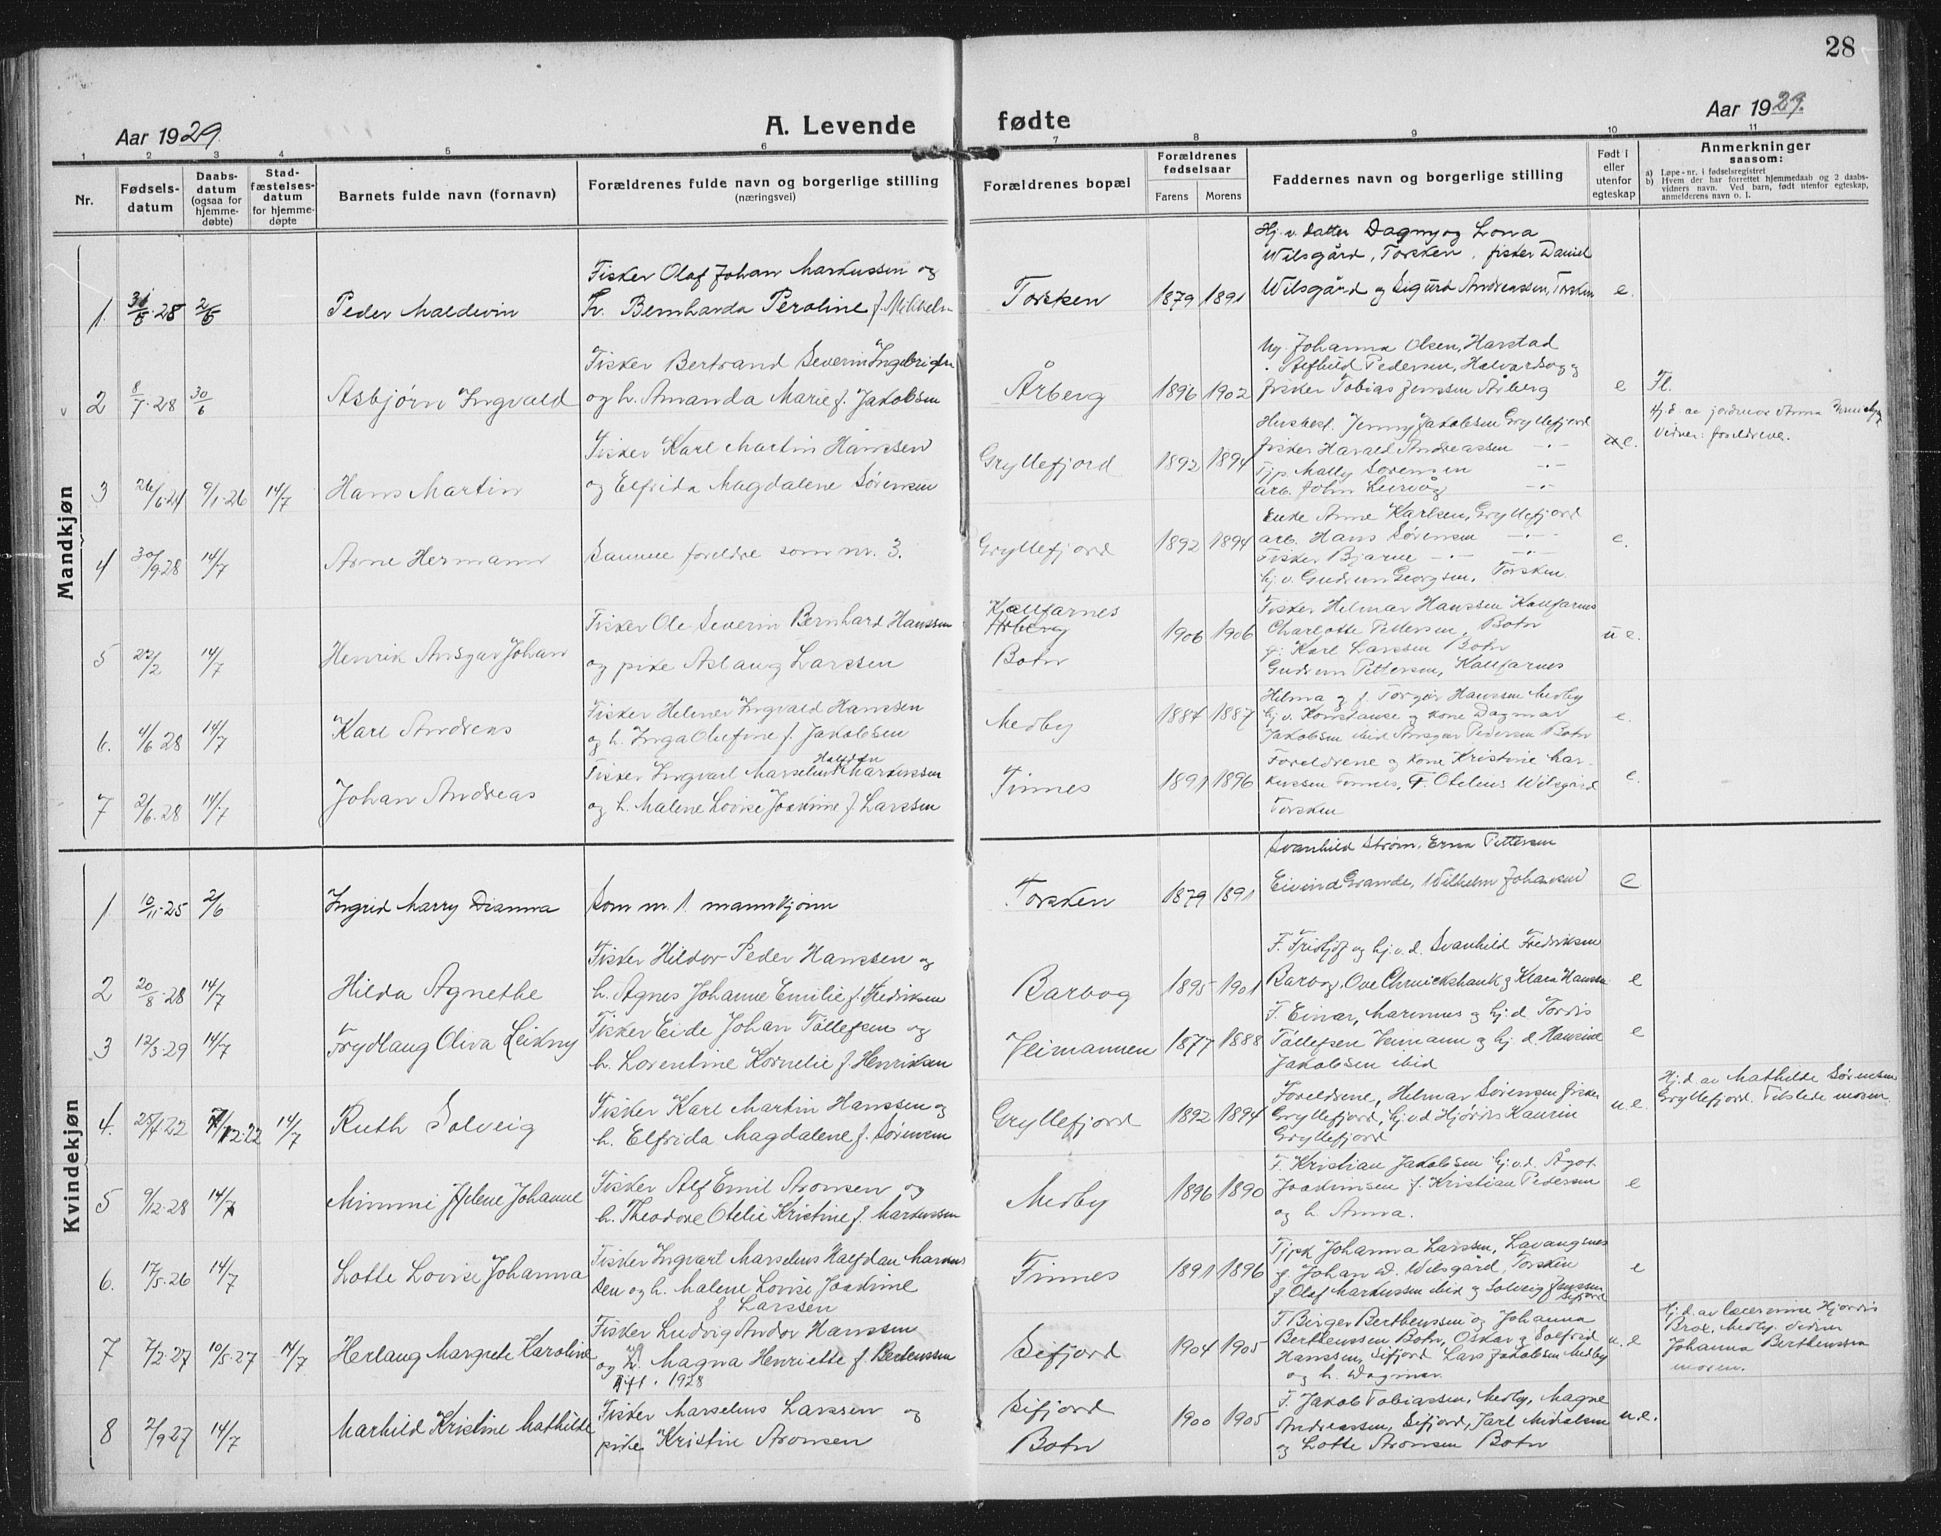 28
Aar 1929. A. Levende fødte Aar 1929.
1 2 3 4 5 6 7 8 9 10 11
Nr. Fødsels-datum Daabs-datum (ogsaa for hjemme-døbte) Stad-fæstelses-datum for hjemme-døpte Barnets fulde navn (fornavn) Forældrenes fulde navn og borgerlige stilling (næringsvei) Forældrenes bopæl Forældrenes fødselsaar Farens Morens Faddernes navn og borgerlige stilling Født i eller utenfor egteskap Anmerkninger saasom:
a) Løpe-nr. i fødselsregistret
b) Hvem der har forrettet hjemmedaab og 2 daabs-vidners navn. Ved barn, født utenfor egteskap, anmelderens navn o. l.
Mandkjøn
Hj. v. datter Dagny og Lona
Wilsgård, Torsken, fisker Daniel
Fisker Olaf Johan Markussen og
1. 28 2/6 Peder Maldevin h. Bernharda Peroline f. Torsken 1879 1891 Wilsgård og Sigurd Andreassen, Torsken e.
Johanna Olsen, Harstad
Fisker Bertrand Severin Ingebrigtsen
Pedersen, Halvardsøy og
2 8/7-28 30/6 Asbjørn Ingvald og h. Amanda Marie f. Jakobsen Årberg 1896 1902 fisker Tobias Jenssen Årberg e Fl.
Hj. d. av jordmor Anna
Vidner: foreldrene.
Fisker Karl Martin Hanssen
Jenny Jakobsen Gryllefjord
fisker Harald Andreassen -"-
3 26/6-24 9/1-26 14/7 Hans Martin og Elfrida Magdalene Sørensen Gryllefjord 1892 1894 Tjp. Mally Sørensen -"- e.
arb. John Leirvåg -"-
Enke Anne Karlsen, Gryllefjord
4 30/9-28 14/7 Arne Hermann Samme foreldre som nr. 3. Gryllefjord 1892 1894 arb. Hans Sørensen -"- e.
Fisker Bjarne -"- -"-
hj. v. Gudrun Georgsen, Torsken.
Fisker Ole Severin Bernhard Hanssen Kallfarnes
Årberg
Fisker Helmar Hanssen Kallfarnes
5 22/2 14/7 Henrik Ansgar Johan og pike Aslaug Larssen Botn 1906 1906 Charlotte Pettersen, Botn u e.
Karl Larssen Botn
Gudrun Pettersen, Kallfarnes
Fisker Helmer Ingvald Hanssen
Hilma og f. Torgeir Hanssen Medby
6. 4/6 28 14/7 Karl Andreas og h. Inga Olufine f. Jakobsen Medby 1884 1887 hj. v. Konstanse og kone Dagmar e.
Jakobsen ibid Ansgar Pedersen Botn
Halfdan
Fisker Ingvart Marselius Markussen
Foreldrene og kone Kristine Mar-
7 2/6-28 14/7 Johan Andreas og h. Malene Lovise Joakine f. Larssen Finnes 1891 1896 kussen Finnes, F. Otelius Wilsgård e.
Torsken
Kvindekjøn
Svanhild Strøm, Erna Pettersen
1 10/11-25 2/6 Ingrid Marry Dianna Som nr. 1. mannkjønn Torsken 1879 1891 Eivind Grande, Wilhelm Johansen e
Fisker Hildor Peder Hanssen og
F. Fridtjof og hj. v. d. Svanhild Fredriksen
2 20/8-28 14/7 Hilda Agnethe h. Agnes Johanne Emilie f. Fredriksen Barbog 1895 1901 Barbog, Ove Chruickshank og Klara Hanssen e
Fisker Eide Johan Tøllefsen og
F. Einar, Marinus og hj. d. Tordis
3 12/3-29 14/7 Frydlaug Oliva Leikny h. Lorentine Kornelie f. Henriksen 1877 1888 Tøllefsen og hj. d. e
Jakobsen ibid
Fisker Karl Martin Hanssen og
Foreldrene, Helmar Sørensen fisker
Hj. d. av Mathilde Sørensen
Gryllefjord. Tilstede moren.
4. 25/4 22 12-22 14/7 Ruth Solveig h. Elfrida Magdalene f. Sørensen Gryllefjord 1892 1894 Gryllefjord, hj. v. d. Hjørdis Kaurin u e.
Gryllefjord
Fisker Alf Emil Aronsen og
F. Kristian Jakobsen hj. v. d. Ågot
5 9/12-28 14/7 Mimmi Helene Johanne h. Theodore Otelie Kristine f. Markussen Medby 1896 1890 Joakimsen f. Kristian Pedersen e
og h. Anna.
Fisker Ingvart Marselius Halfdan Markus
Tjpk Johanna Larssen, Lavangsnes
6. 17/5-26 14/7 Lotte Lovise Johanna sen og h. Malene Lovise Joakine Finnes 1891 1896 f. Johan D. Wilsgård, Torsken e
f Larssen
f Olaf Markussen ibid og Solveig Jenssen Sifjord
Fisker Ludvig Andor Hanssen
F Birger Berthenssen og Johanna
7 7/2-27 10/5-27 14/7 Herlaug Margrete Karoline og h. Magna Henriette f. Bertenssen Sifjord 1904 1905 Berthenssen Botn, Oskar og Solfrid u. e
gift. 1928
Hanssen, Sifjord Lars Jakobsen Medby
og h. Dagmar.
Hj. d. av lærerinne Hjørdis
Brox, Medby.
Johanna Berthenssen
moren.
Fisker Marselius Larssen og Sifjord
F. Jakob Tobiassen, Medby, Magne
8 2/9-27 14/7 Marhild Kristine Mathilde pike Kristine Aronsen Botn 1900 1905 Andreassen, Sifjord, Jarl Mikalsen u. e.
og Lotte Aronsen Botn